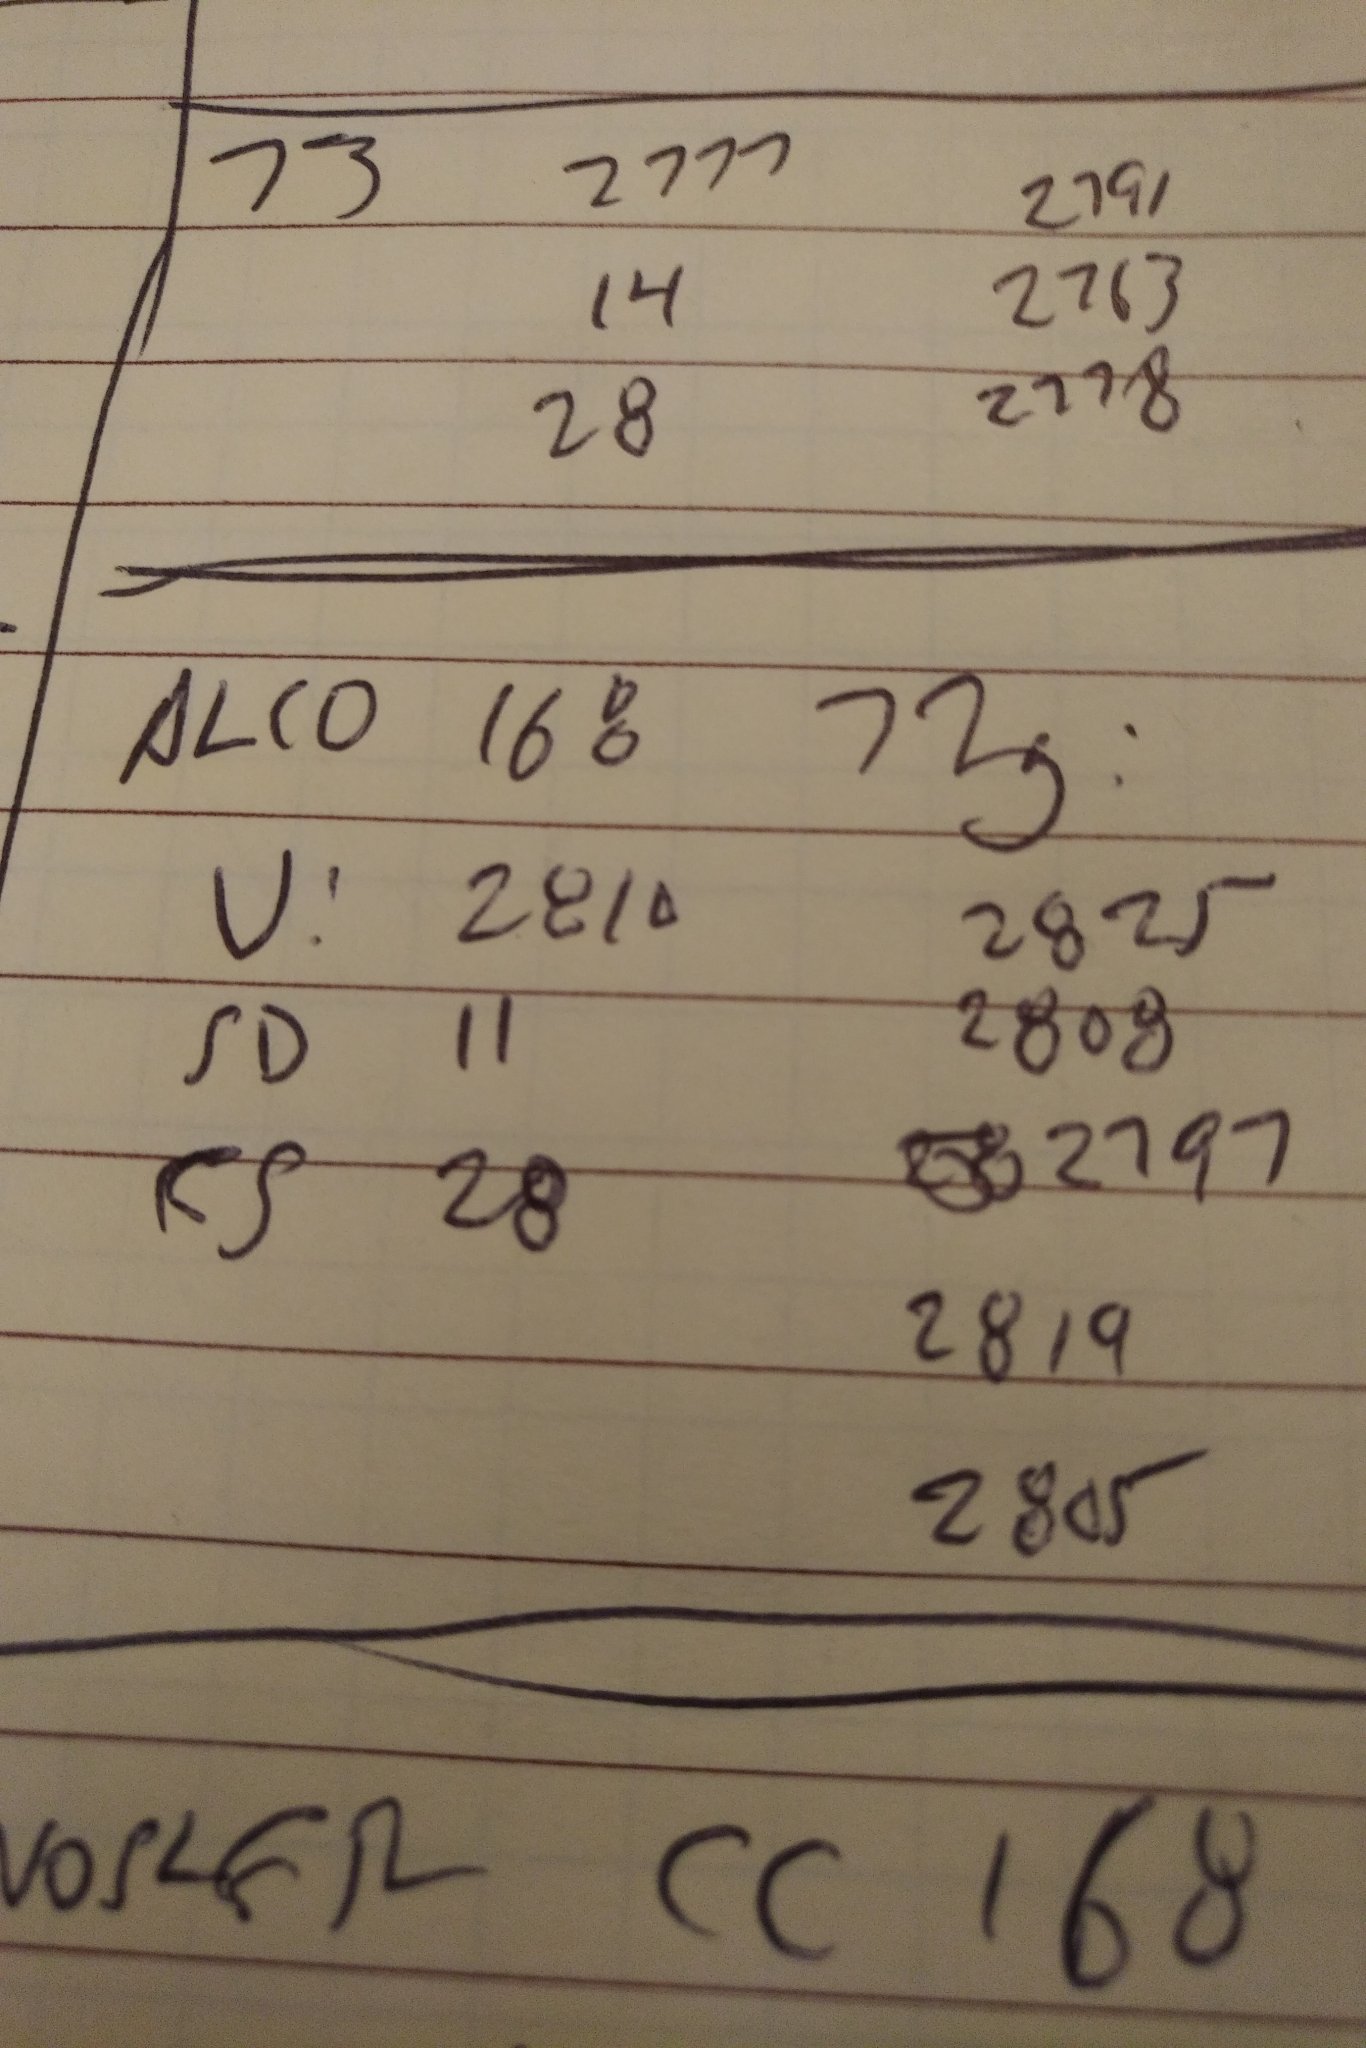 73 2777 2791
14 2763
28 2778
ALCO 168 72g:
V: 2810 2825
SD 11 2808
ES 28 2797
2819
2805
NOSLER CC 168